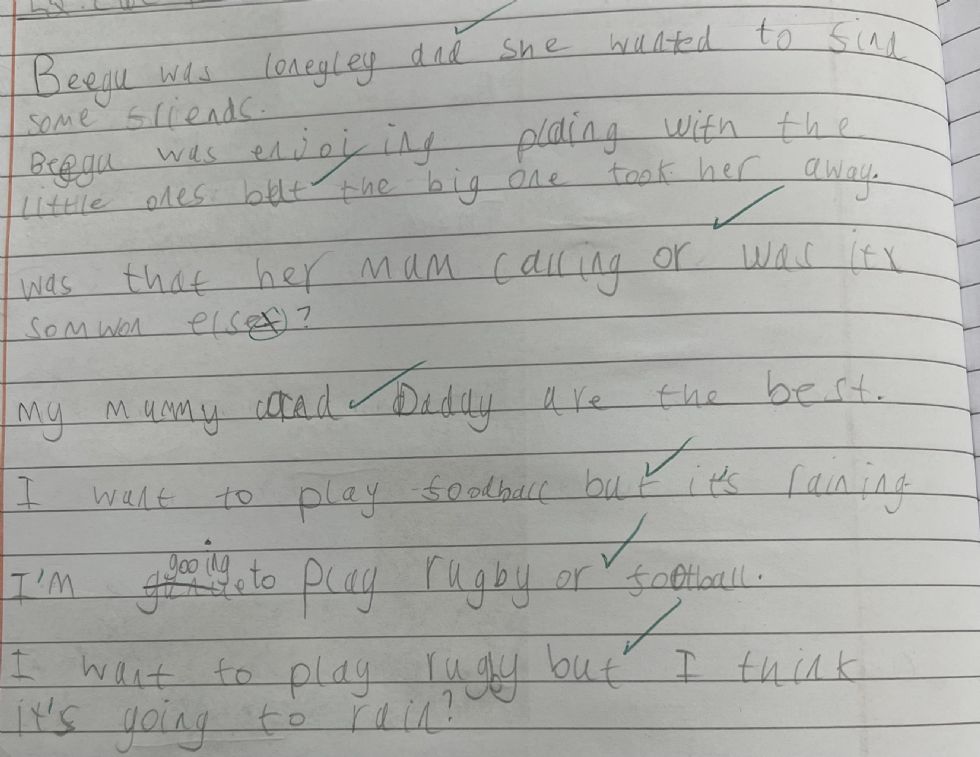 Beegu was lonegley and she wanted to find
some friends.
Beegu was enjoiing plding with the
little ones but the big one took her away.
was that her mam calling or was it
somwon else?
my mummy and Daddy are the best.
I want to play foodball but it's raining
I'm gooing to play rugby or football.
I want to play rugby but I think
it's going to rain?